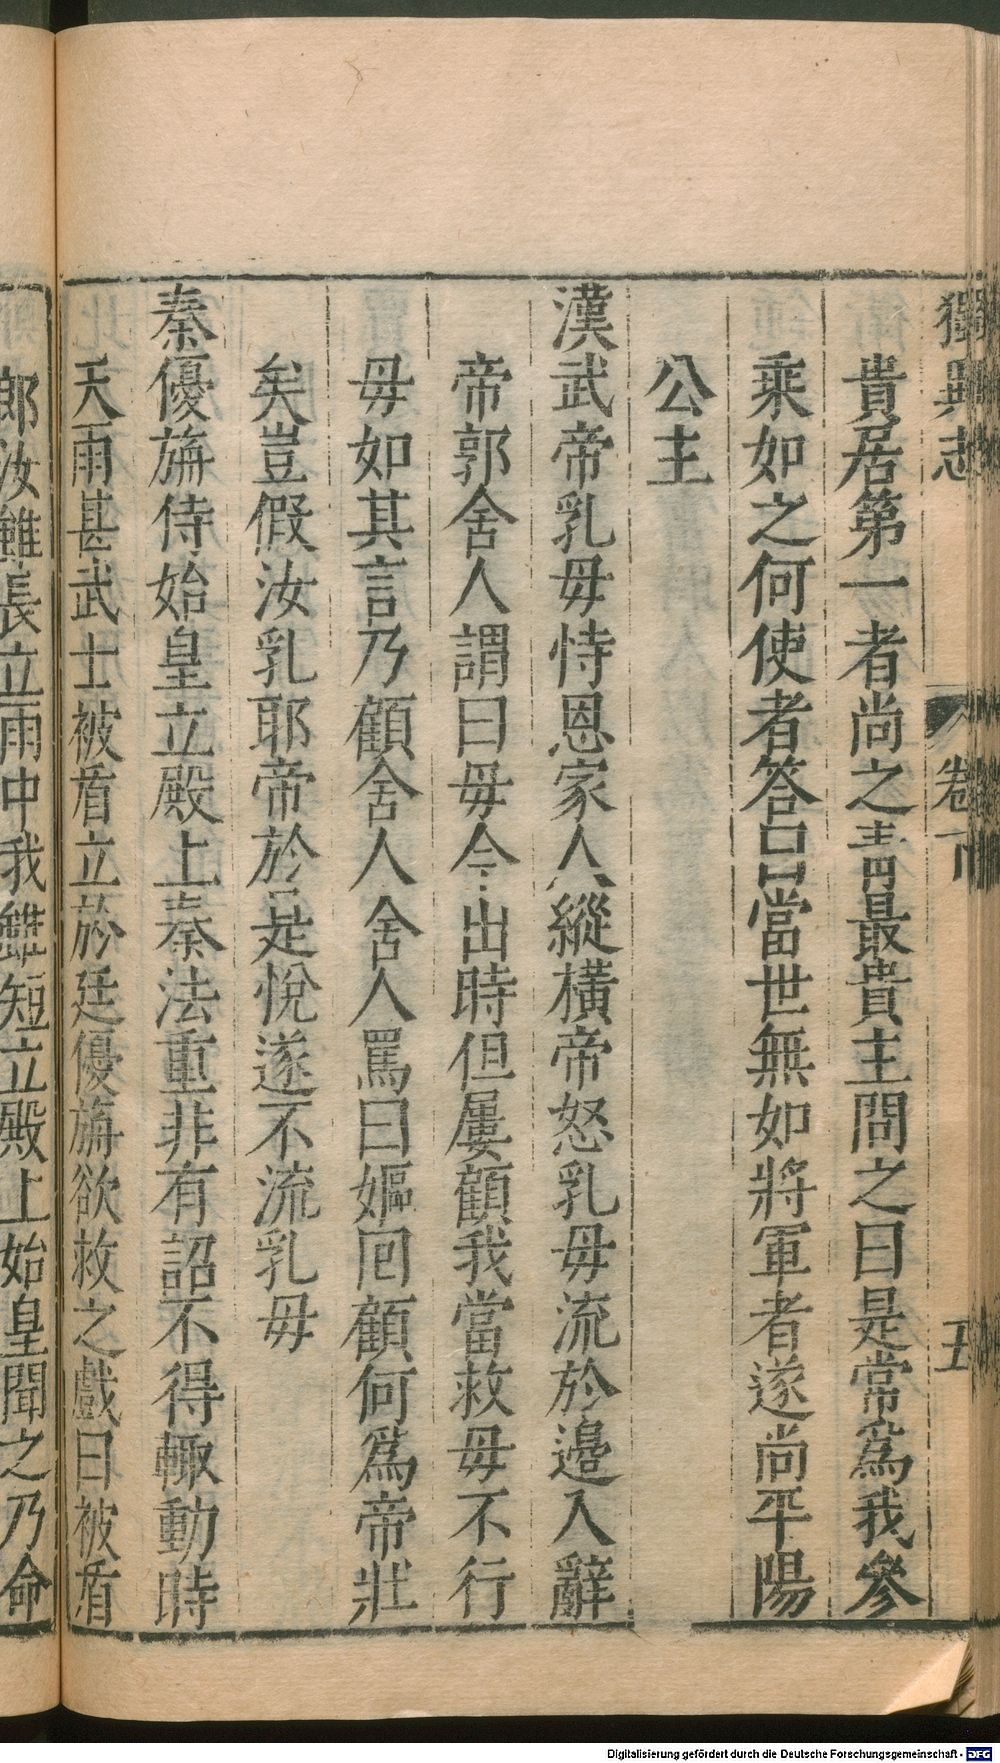 獨異志
卷下
五
貴居第一者尚之青最貴主問之曰是常爲我參
乘如之何使者答曰當世無如將軍者遂尚平陽
公主
漢武帝乳母恃恩家人縱橫帝怒乳母流於邉入辭
帝郭舍人謂曰毋令出時但屢顧我當救毋不行
毋如其言乃顧舍人舍人罵曰嫗囘顧何爲帝壯
矣豈假汝乳耶帝於是悅遂不流乳毋
秦優旃侍始皇立殿上秦法重非有詔不得輙動時
天雨甚武士被盾立於廷優旃欲救之戲曰被盾
郎汝雖長立雨中我雖短立殿上始皇聞之乃命
Digitalisierung gefördert durch die Deutsche Forschungsgemeinschaft - DFG